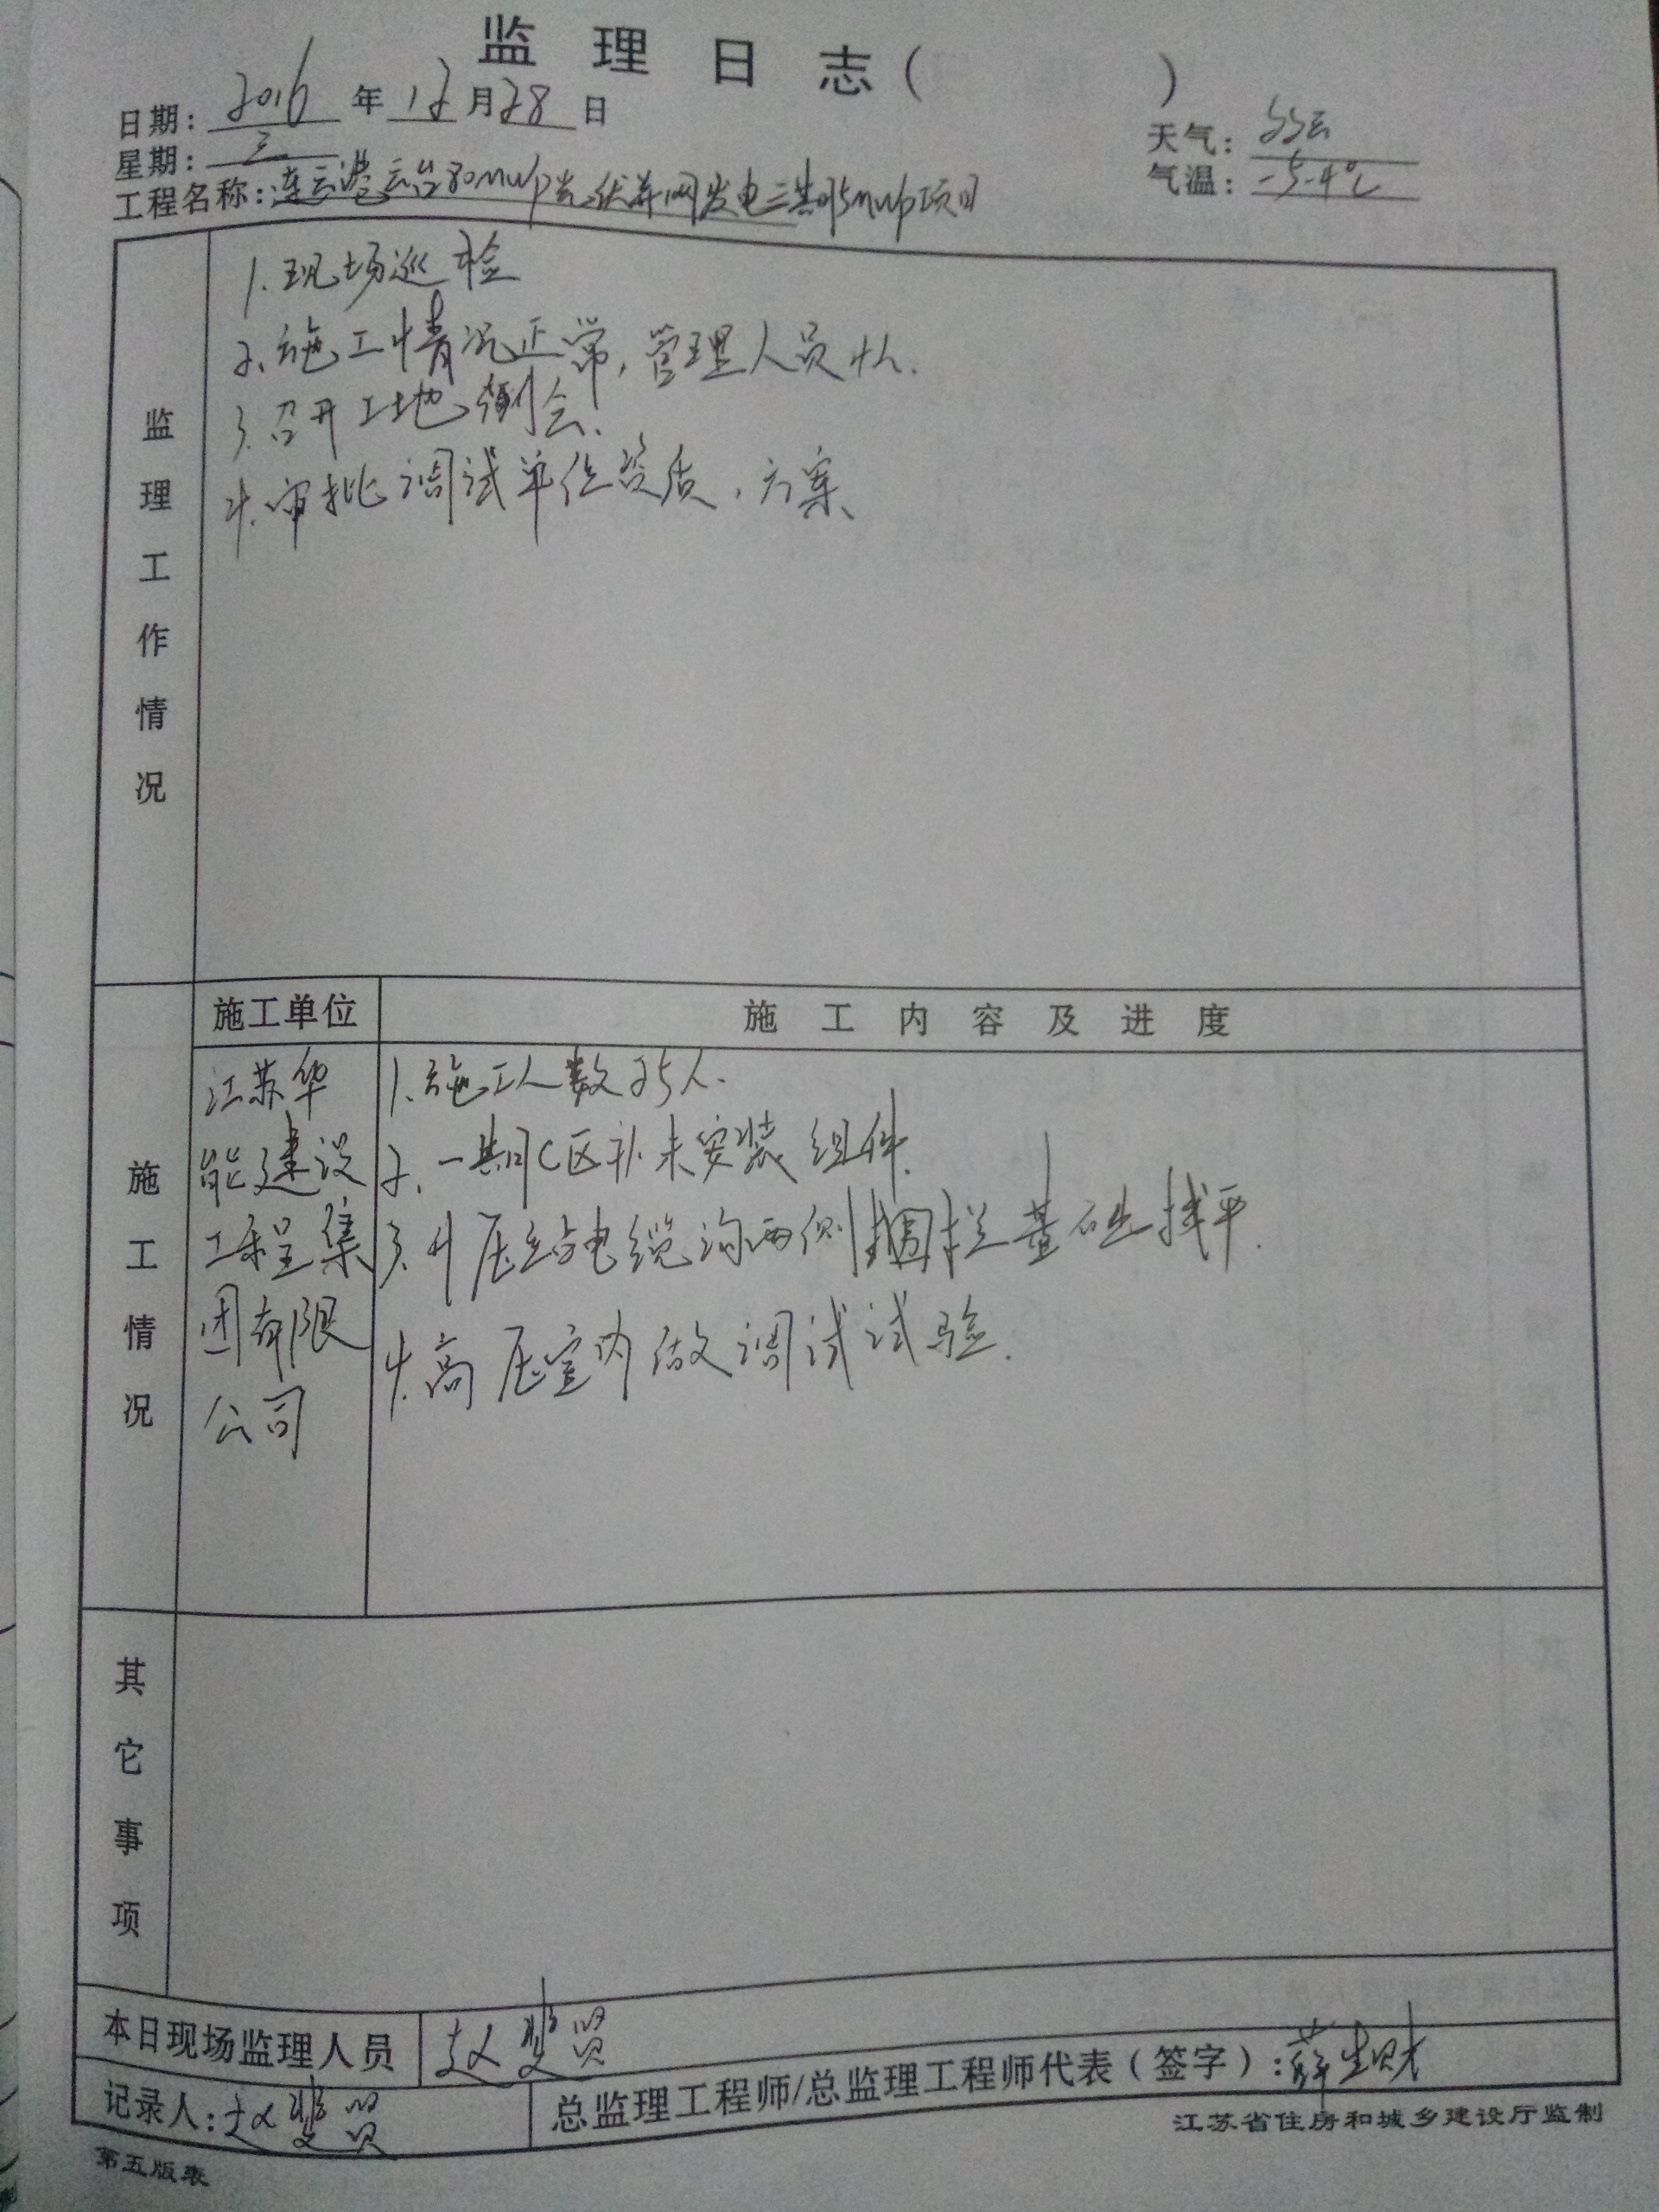 监理日志（ ）
日期：2016年12月28日
天气：多云
星期：三
气温：-5-4℃
工程名称：连云港云台80MWp光伏并网发电三期5MWp项目
监理工作情况
1.现场巡检
2.施工情况正常，管理人员4人.
3.召开工地例会.
4.审批调试单位资质、方案、
施工情况
施工单位
施工内容及进度
江苏华
能建设
工程集
团有限
公司
1.施工人数25人.
2.一期C区补未安装组件.
3.升压站电缆沟两侧围栏基础找平.
4.高压室内做调试试验.
其它事项
本日现场监理人员
赵斐贤
记录人：赵斐贤
总监理工程师/总监理工程师代表（签字）：薛生财
江苏省住房和城乡建设厅监制
第五版表